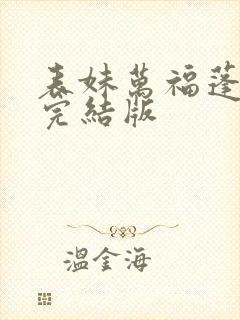 表妹萬福蓬
完結版
溫金海